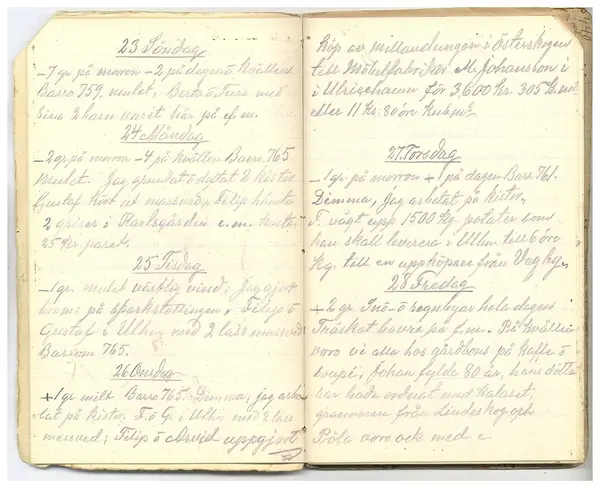 23 Söndag
-7 gr. på morron -2 på dagen o kvällen
Barro 759. mulet, Berta o Ture med
sina 2 barn varit här på ef m.
24 Måndag
-2 gr på morron -4 på kvällen Barro. 765.
mulet. Jag grundat o dytat 2 kistor
Gustaf kört ut massved, Filip hämta
2 grisar i Karlsgården e.m. kosta
25 Kr. paret.
25 Tisdag
-1 gr. mulet västlig vind; Jag gjort
broms på sparkstöttingen, Filip o
Gustaf i Ulhm med 2 lass massved
Barrom 765.
26 Onsdag
+1 gr. milt Barro 765. Dimma; jag arbe
tat på kistor. F. o G. i Ulhm med 2 lass
massved; Filip o Arvid uppgjort
köp av millandungon i Österskogen
till Möbelfabriker M. Johansson i
i Ulricehamn för 3,600 Kr. 305 K.
eller 11 Kr. 80 öre Kubm.
27 Torsdag
-1 gr. på morron +1 på dagen Baro 761.
Dimma, jag arbetat på kistor,
F. vägt upp 1500 Kg. potater som
han skall leverera i Ulhm. till 6 öre
Kg. till en uppköpare från
28 Fredag
+2 gr. Snö- o regnbyar hela dagen
Träskat havre på f.m. På kvällen
voro vi alla hos gårdbons på kaffe o
soupé, Johan fylde 80 år, hans döttrar
hade ordnat med kalaset,
grannarna från Lindeskog och
Pöla voro ock med